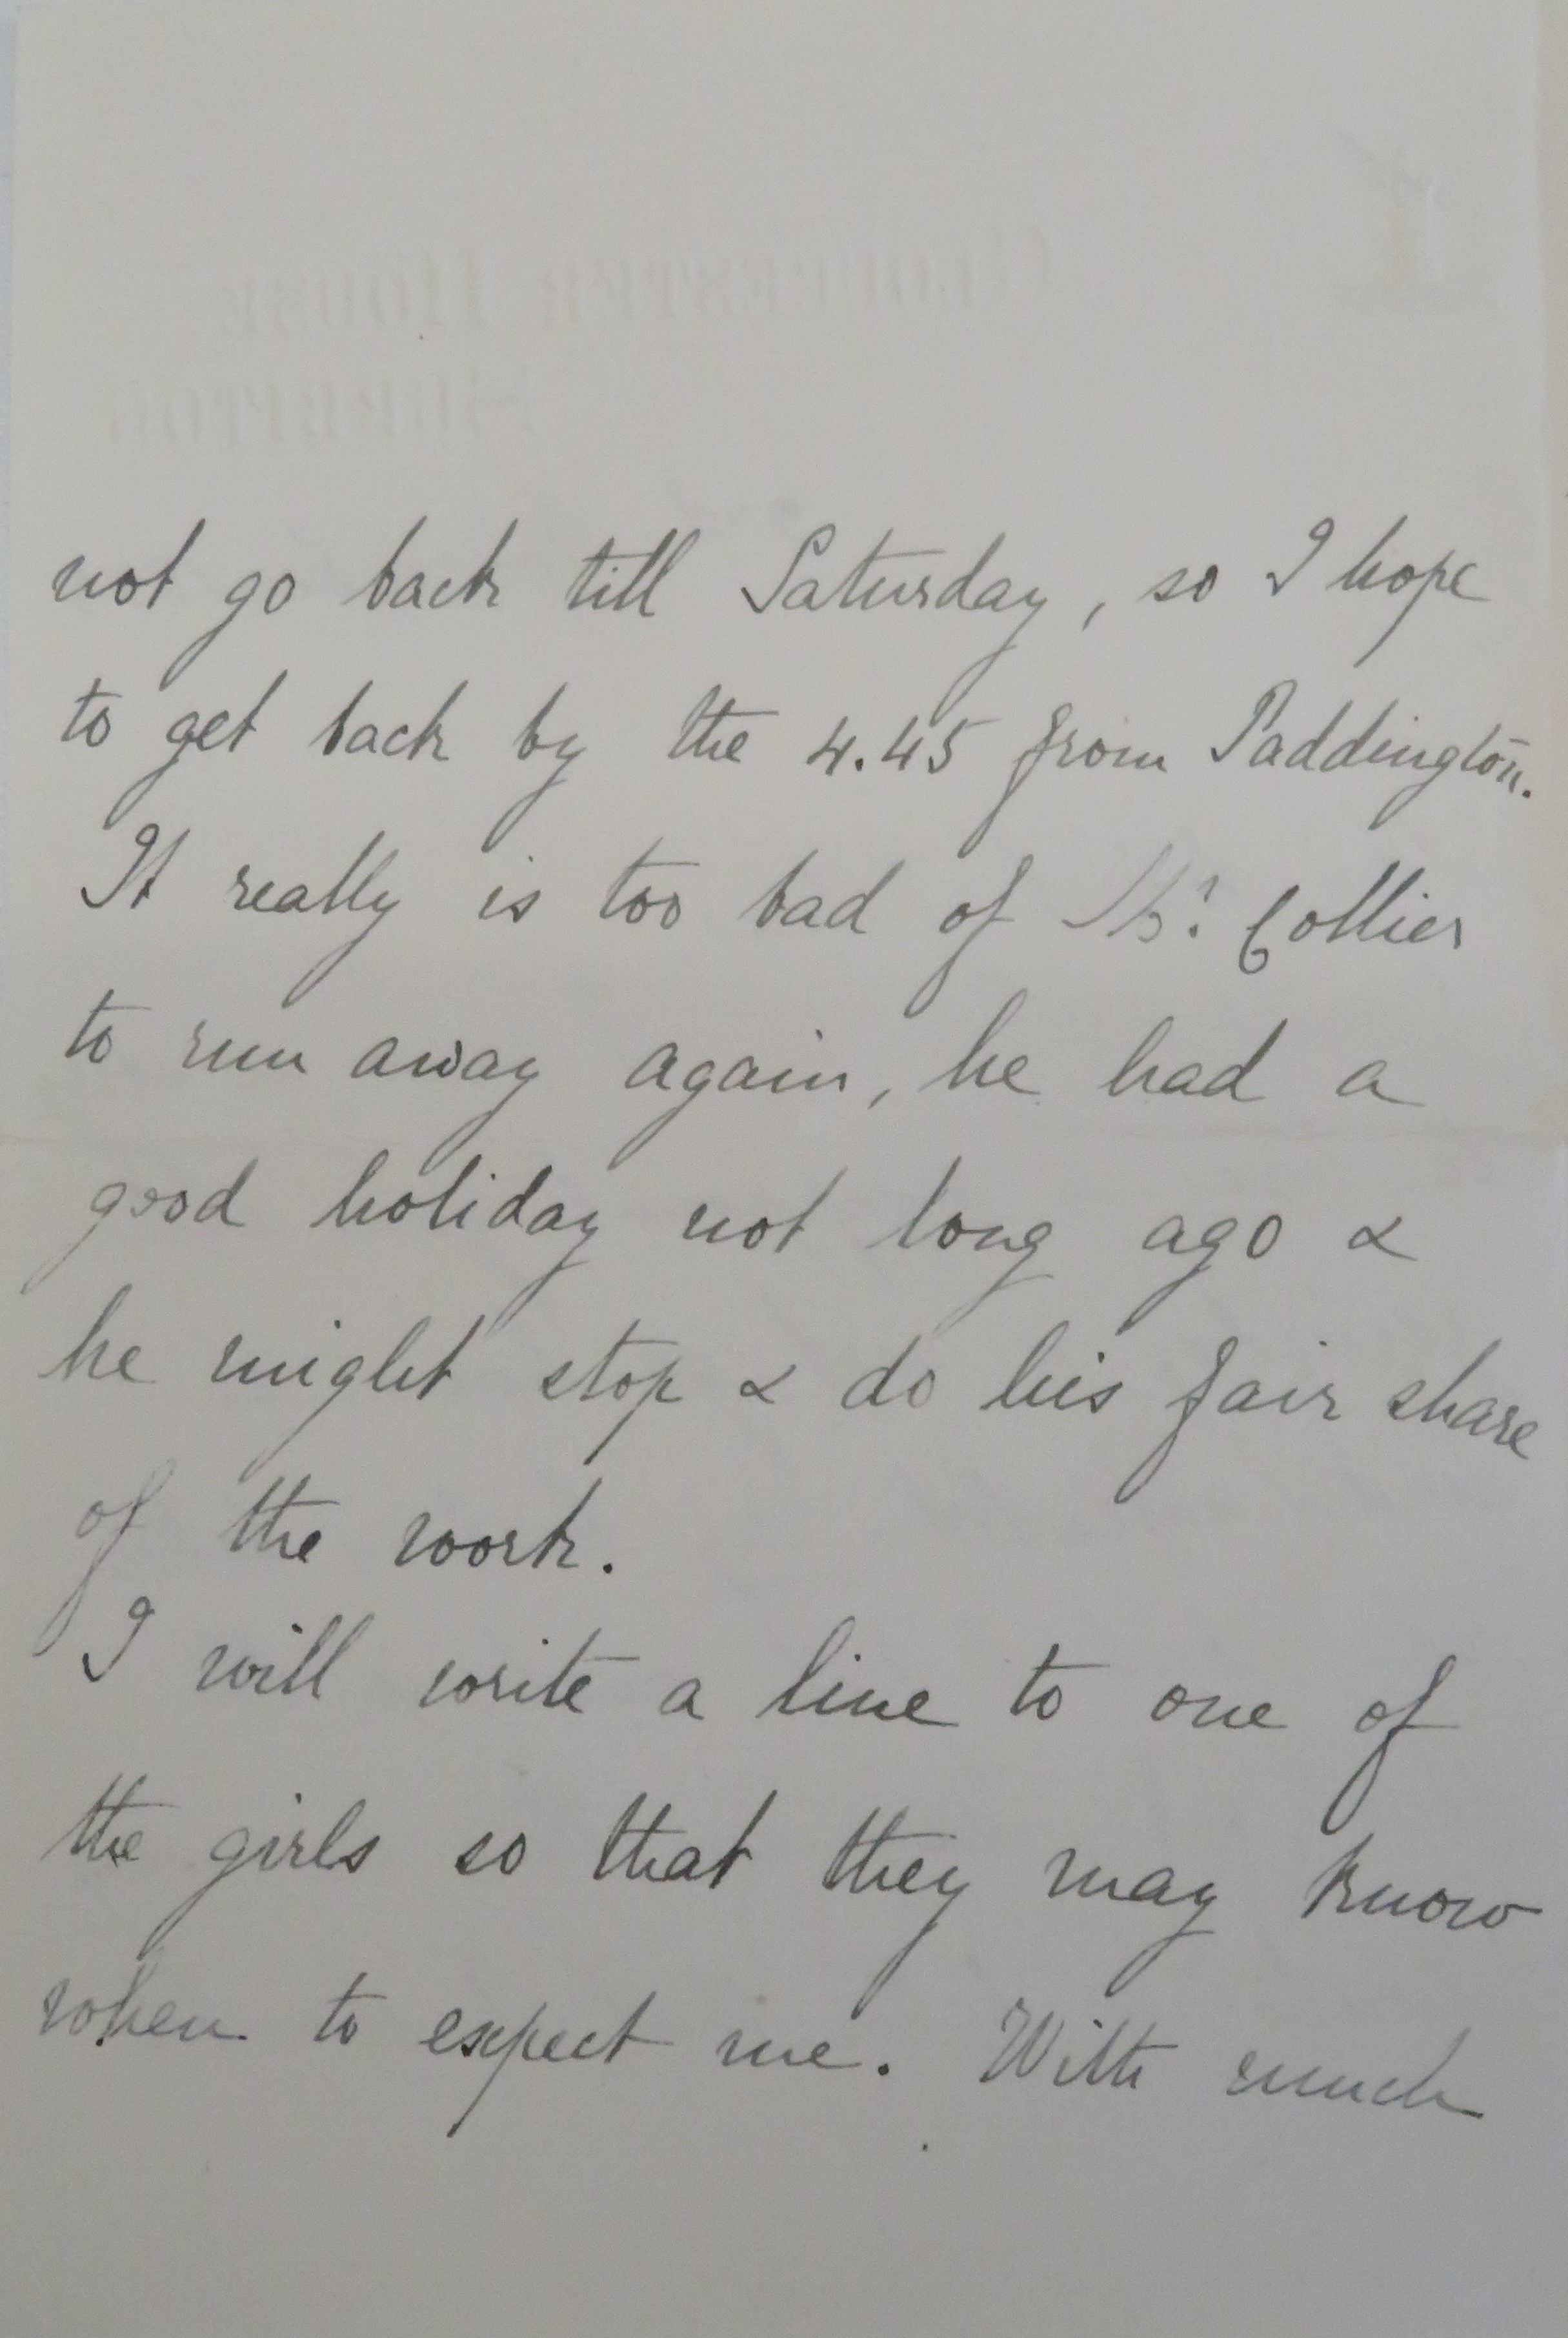 GLOUCESTER HOUSE
SURBITON
not go back till Saturday, so I hope
to get back by the 4.45 from Paddington.
It really is too bad of Mr. Collier
to run away again, he had a
good holiday not long ago &
he might stop & do his fair share
of the work.
I will write a line to one of
the girls so that they may know
when to expect me. With much